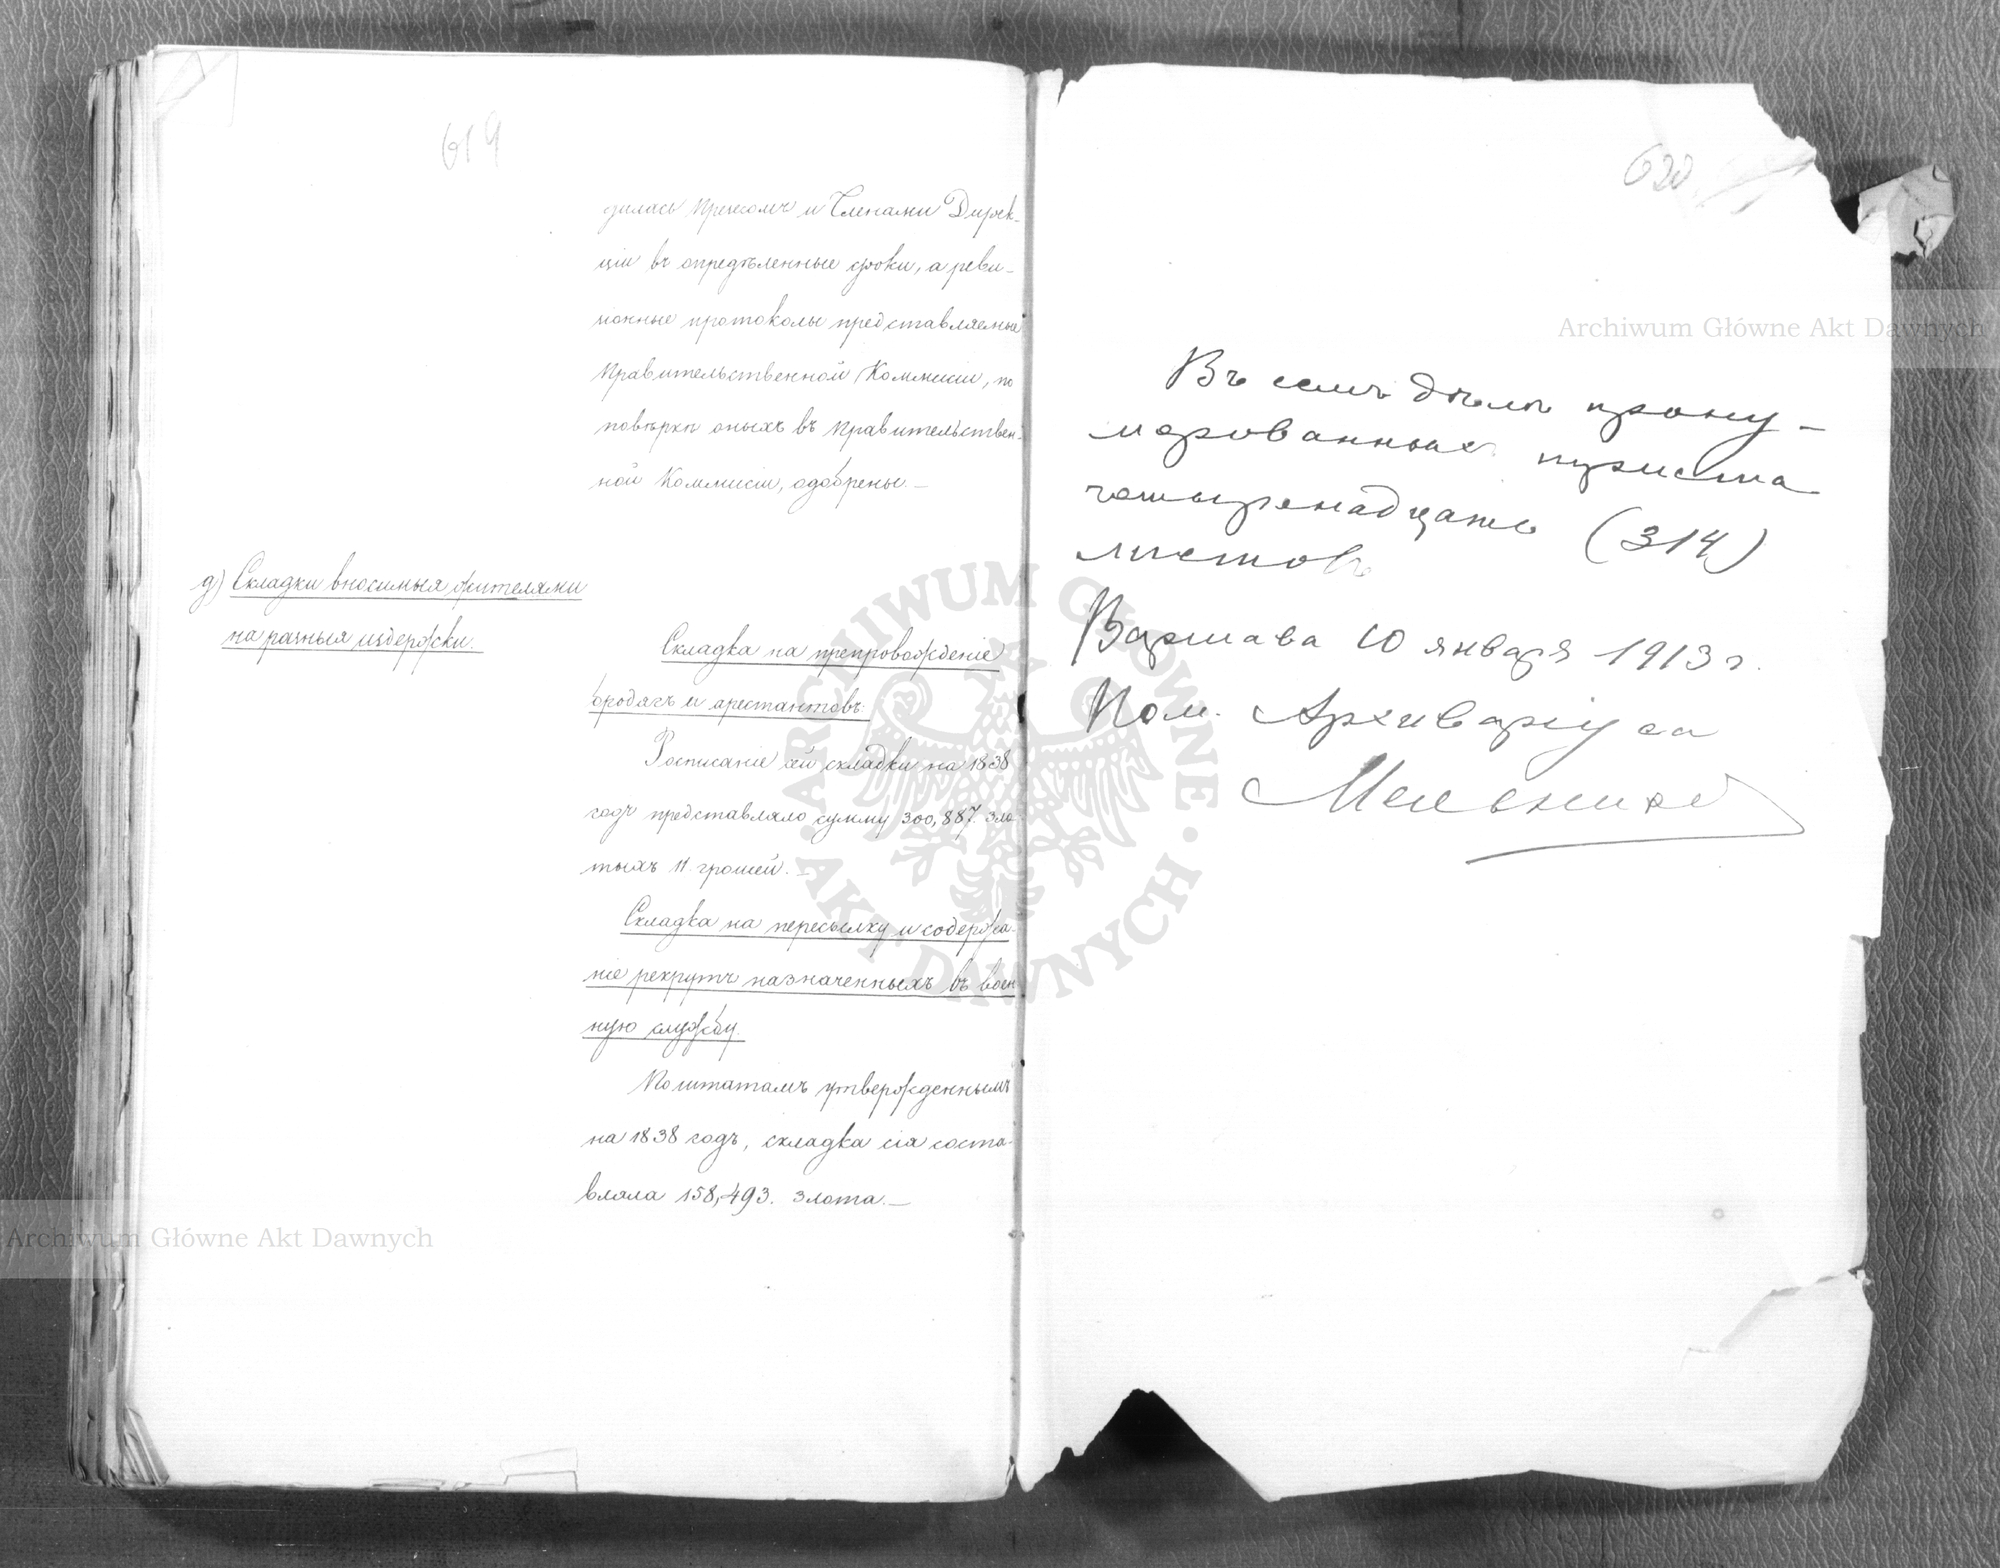 619
дилась Презесомъ и Членами Дирек-
ціи въ опредѣленные сроки, а реви-
зіонные протоколы представляемые
Правительственной Коммисіи, по
повѣркѣ оныхъ въ Правительствен-
ной Коммисіи, одобрены.—
д) Складки вносимыя жителями
на разныя издержки.
Складка на препровожденіе
бродягъ и арестантовъ:
Росписаніе сей складки на 1838
годъ представляло сумму 300,887. зло-
тыхъ 11 грошей.—
Складка на пересылку и содержа-
ніе рекрутъ назначенныхъ въ воен-
ную службу.
По штатамъ утвержденнымъ
на 1838 годъ, складка сія соста-
вляла 158,493. злота.—
620
Въ семъ дѣлѣ прону-
мерованныхъ триста
четырнадцать (314)
листовъ
Варшава 10 января 1913 г.
Пом. Архиваріуса
Archiwum Główne Akt Dawnych
ARCHIWUM GŁÓWNE · AKT DAWNYCH ·
Archiwum Główne Akt Dawnych